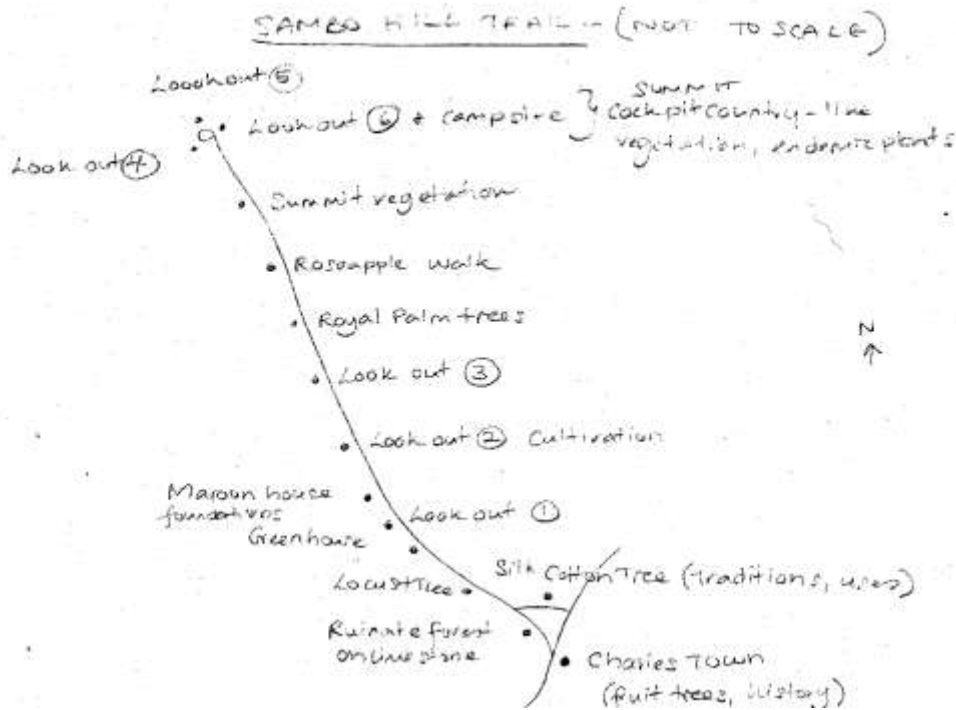 SAMBO HILL TRAIL - (NOT TO SCALE)
Loookout ⑤
Look out ⑥ + campsite } SUMMIT
Cockpit Country-like
vegetation, endemic plants
Look out ④
Summit vegetation
Roseapple walk
Royal Palm trees
N
Look out ③
Look out ② Cultivation
Maroon house
foundations
Look out ①
Greenhouse
Silk Cotton Tree (traditions, uses)
Locust Tree
Ruinate forest
on limestone
Charles Town
(fruit trees, history)